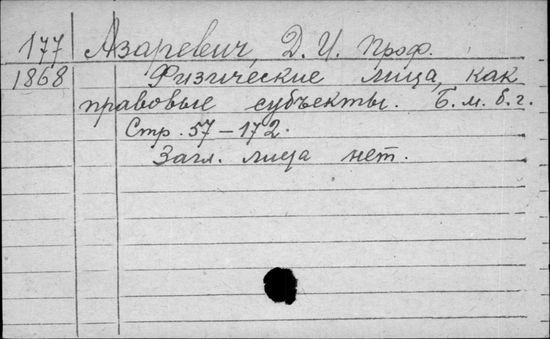 177 Азаревич, Д. И. проф.
1868 Физические лица, как
правовые субъекты. Б. м. б. г.
Стр. 57-172.
Загл. лица нет.